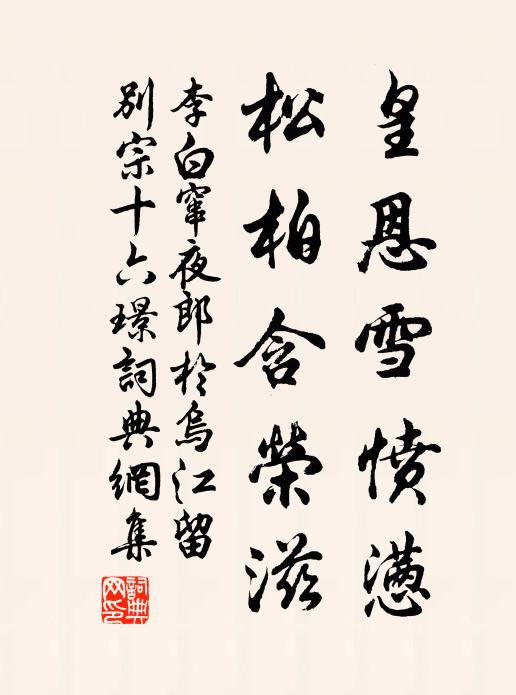 皇恩雪憤懑
松柏含榮滋
李白竄夜郎於烏江留
別宗十六璟詞典網集
詞典網印